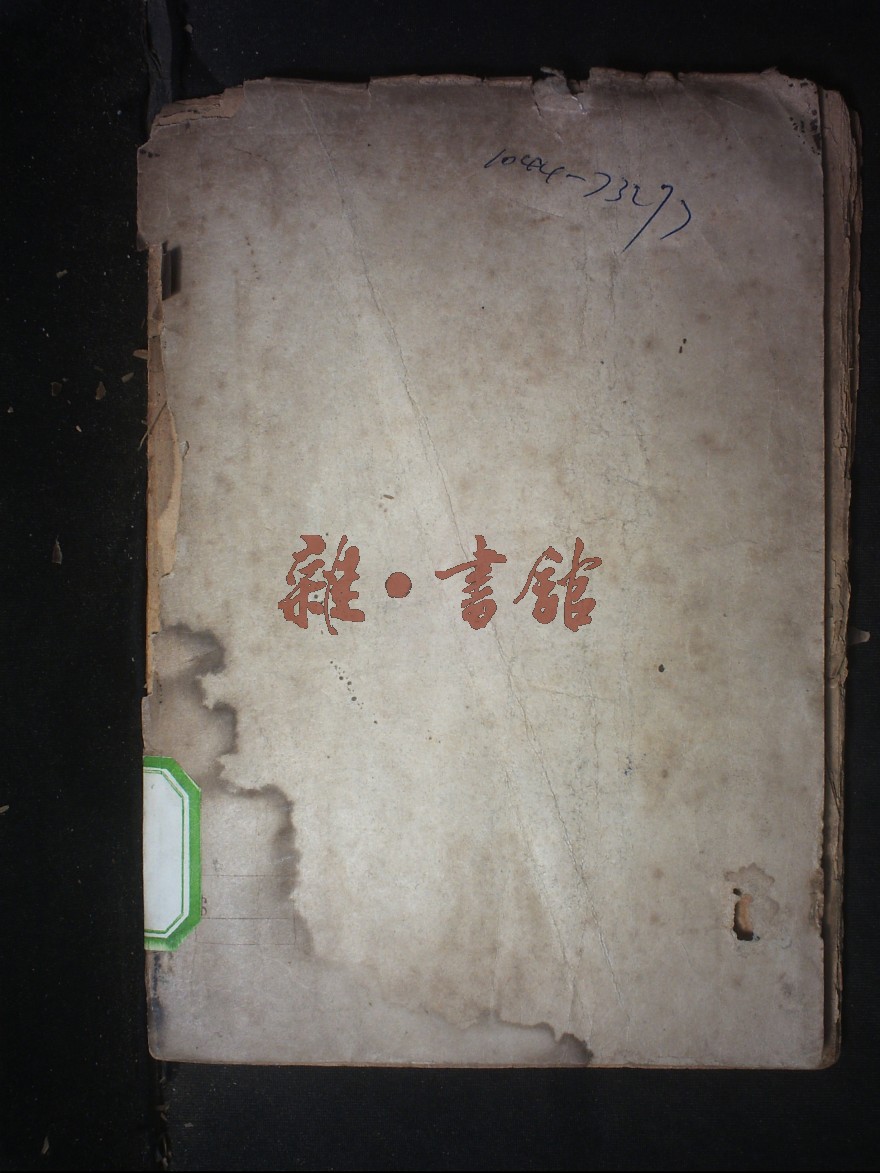 1044-73277
雜·書館